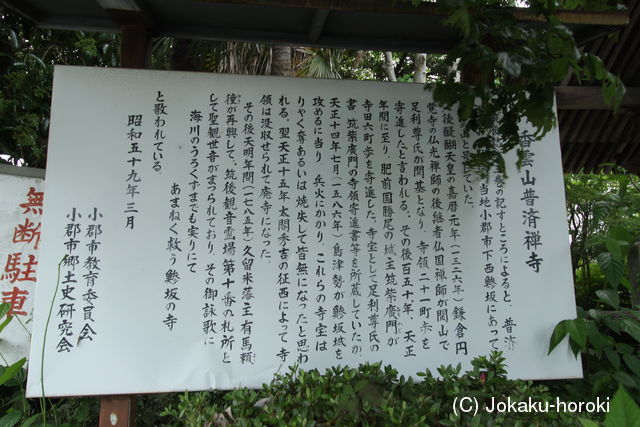 香雲山普済禅寺
巻の記すところによると、普済
当地小郡市下西鯵坂にあって
と号していた。
後醍醐天皇の嘉暦元年(一三二六年)鎌倉円
覚寺の仏光禅師の後継者仏国禅師が開山で
足利尊氏が開基となり、寺領二十一町歩を
寄進したと言われる。その後百五十年、天正
年間に至り肥前国勝尾の城主筑紫廣門が
寺田六町歩を寄進した。寺宝として足利尊氏の
書、筑紫廣門の寺領寄進書等を所蔵していたが、
天正十四年七月(一五八六年)島津勢が鯵坂城を
攻めるに当り、兵火にかかり、これらの寺宝は
りやく奪あるいは焼失して皆無になったと思わ
れる。翌天正十五年太閤秀吉の征西によって寺
領は没収せられて廃寺になった。
その後天明年間(一七八五年)久留米藩主有馬頼
徸が再興して、筑後観音霊場第十番の札所と
して聖観世音がまつられており、その御詠歌に
海川のうろくずまでも実りにて
あまねく救う鯵坂の寺
と歌われている。
昭和五十九年三月
小郡市教育委員会
小郡市郷土史研究会
無断駐車
(C) Jokaku-horoki